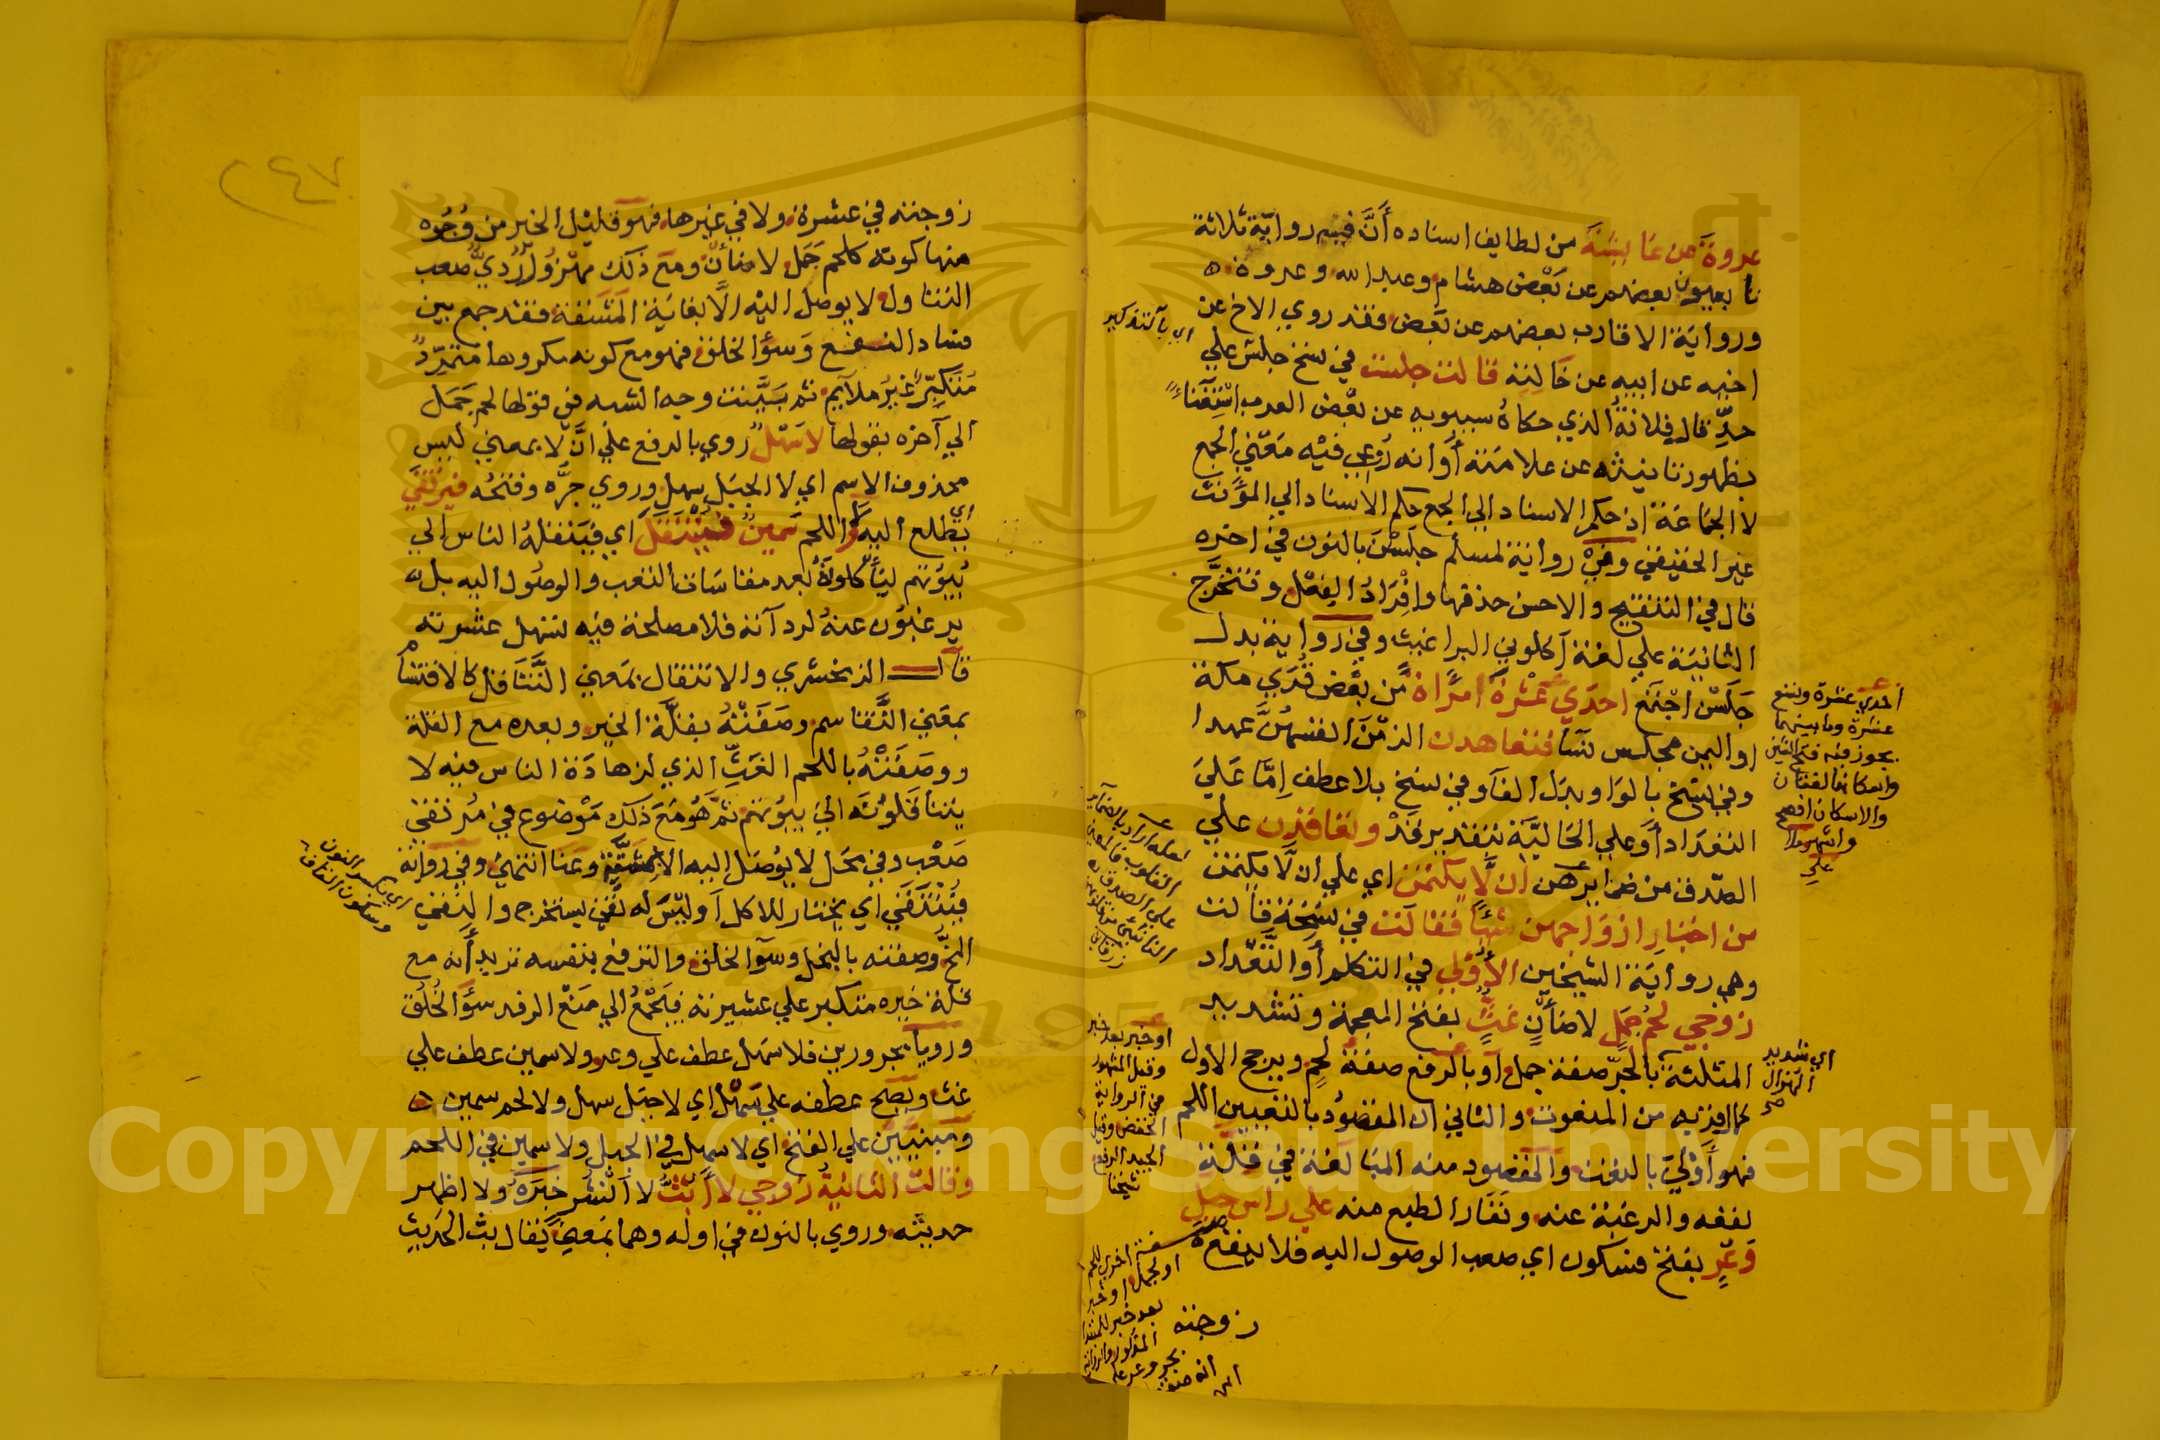 عروة عن عائشة من لطايف اسناده أنَّ فيه رواية ثلاثة
تابعيون بعضهم عن بَعْض هشام وعبد الله وعروة ه
ورواية الاقارب بعضهم عن بَعض فقد روي الاخ عن
اخيه عن ابيه عن خالته قالت جلست في نسخ جلس علي
حدِّ قال فلانة الذي حكاهُ سيبويه عن بعْض العرب اسْتِغْنَاءً
بظهور تانيثه عن علامته أو انه رُوعِي فيْه مَعْني الجمع
لا الجماعة اذ حكم الاسناد الي الجمع حكم الاسناد الي المؤنث
غير الحقيقي وفيْ رواية لمسلم جلسْنَ بالنون في اخره
قال في التنقيح والاحسن حذفها وافْرَادُ الفعْل وتتخرَّج
الثانية علي لغة أكلوني البراغيث وفي رواية بدل
جَلَسْن اجْتَمَع احدَي عَشْرَة امرَاة مِّن بعْض قُرَي مكة
او اليمن مجلس نسَا فتعاهدن الزمْنَ انفسهُنَّ عهدا
وفي نسْخ بالوَاو بدَل الفَا وفي نسخ بلا عطف اِمَّا عَليَ
التعدَاد أو علي الحَاليَّة بتقدير قَدْ وتعاقدن علي
الصّدق من ضمايرهن ان لَّا يكتمْن اي علي ان لَّا يكتمن
من اخبَارِ ازوَاجهن شَيْأً فقالت في نسْخَة قالت
وهي رواية الشيخين الأُوْلي في التكلم أو التَّعْداد
زوْجي لحْمُ جمَلٍ لا ضأنٍ غثٍّ بفتح المعجمة وتشديد
المثلثة بالجرّ صفة جمل أو بالرفع صفة لحم ويرجح الاول
فهو أوْلي بالنعت والمقصود منه المبالغة في قلة
نفعه والرغبة عنه ونفَار الطبع منه علي راس جبل
وَعْرٍ بفتح فسكون اي صعب الوصول اليه فلا ينفع
زوجته
اي بالتذكير
احدي عشرة وتسع
عشرة وما بينهما
يجوز فيه فتح الشين
واسكانها لغتان
والاسكان افصح
واشهر
علي
اي شديد
الهزال
صح
او خبر بعد خبر
وقيل المشهور
في الرواية
الخفض وقيل
الجيد الرفع
شيخنا
صفة اخري للحم
او لجمل او خبر
بعد خبر للمبتدا
٢٤٧
زوجته في عشرة ولا في غيرها فهو قليْل الخير من وُجُوه
منها كونه كلحم جَمَل لا ضأنٍ ومع ذلك مهْزُولٌ رَدِيٌّ صعب
التناول لا يوصل اليْه الَّا بغاية المَشقة فقد جمع بين
فساد النفع وَسوْء الخلق فهو مع كونه مكروها متمرِّدٌ
مُتكبِّرٌ غيْر ملايم ثم بَيَّنت وجه الشبه في قولها لحم جَمَل
الي آخره بقولها لا سَهْلٌ روي بالرفع علي انَّ لا بمعني ليس
محذوف الاسم اي لا الجبَل سهل وروي جرَّه وفتحُه فيرْتقَي
اي يطلع اليه وَلا اللحم سَمينٌ فَيُنْتَقَلَ اي فيَنقلهُ الناس الي
بُيوتهم ليَأكلوهُ بعد مقاسَات التعب والوصُول اليه بل
يرغبُون عنهُ لرداته فلا مصلحة فيه تسهل عشرته
قال الزمخشري والانتقال بمَعني التَّناقل كالاقتسَام
بمعَني التَّقاسم وصَفَتْهُ بقلّة الخير وبعده مع القلة
ووصَفَتْهُ باللحم الغَثِّ الذي لزهادَة الناس فيْه لا
يتناقلُونَه اليَ بيُوتهم ثمّ هُو مَعَ ذلك مَوْضوع في مُرتقي
صَعْب وفي محَل لا يُوصَل اليه الا بمَشَقَّة وعَنَا انتهيْ وفي روَاية
فَيُنْتَقَي اي يختار للاكل أو ليْسَ له نِقْي يستخرج والنقي
المخّ وصفته بالبخل وسوء الخلق والترفع بنفسه تريد أنه مع
قلة خيره متكبر علي عشيرته فيَجْمَعُ الي مَنْع الرفد سوْء الخُلق
ورويا مجرورين فلا سَهل عطف علي وعر ولا سمين عطف علي
غث ويصح عطفه علي سَهْل اي لا جبَل سهل ولا لحم سمين ه
ومَبنيَّين علي الفتح اي لا سهل في الجبل ولا سمين في اللحم
وقالت الثانيةُ زوْجي لا أبُثُّ لا أنشُر خَبَرَهُ ولا اظهر
حديثه وروي بالنون في اوله وهما بمَعنيً يُقال بث الحديث
اي بكسر النون
وسكون القاف
Copyright © King Saud University
1957